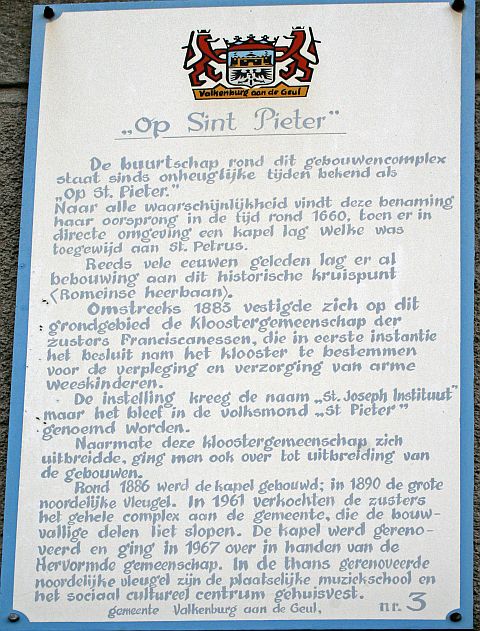 Valkenburg aan de Geul
„Op Sint Pieter"
De buurtschap rond dit gebouwencomplex
staat sinds onheuglijke tijden bekend als
„Op St. Pieter."
Naar alle waarschijnlijkheid vindt deze benaming
haar oorsprong in de tijd rond 1660, toen er in
directe omgeving een kapel lag welke was
toegewijd aan St. Petrus.
Reeds vele eeuwen geleden lag er al
bebouwing aan dit historische kruispunt
(Romeinse heerbaan).
Omstreeks 1885 vestigde zich op dit
grondgebied de kloostergemeenschap der
zusters Franciscanessen, die in eerste instantie
het besluit nam het klooster te bestemmen
voor de verpleging en verzorging van arme
weeskinderen.
De instelling kreeg de naam „St. Joseph Instituut"
maar het bleef in de volksmond „St Pieter"
genoemd worden.
Naarmate deze kloostergemeenschap zich
uitbreidde, ging men ook over tot uitbreiding van
de gebouwen.
Rond 1886 werd de kapel gebouwd; in 1890 de grote
noordelijke vleugel. In 1961 verkochten de zusters
het gehele complex aan de gemeente, die de bouw-
vallige delen liet slopen. De kapel werd gereno-
veerd en ging in 1967 over in handen van de
Hervormde gemeenschap. In de thans gerenoveerde
noordelijke vleugel zijn de plaatselijke muziekschool en
het sociaal cultureel centrum gehuisvest.
gemeente Valkenburg aan de Geul, nr. 3